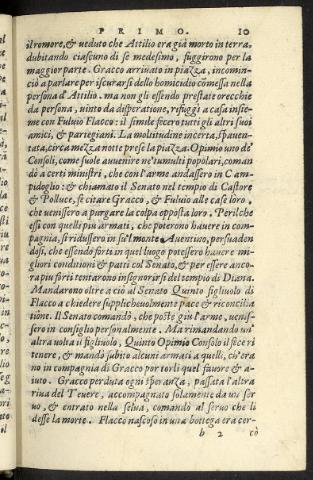 PRIMO. 10
il romore, & veduto che Attilio era già morto in terra,
dubitando ciascuno di se medesimo, fuggirono per la
maggior parte. Gracco arrivato in piazza, incomin-
ciò a parlare per iscusarsi dello homicidio cōmesso nella
persona d'Attilio. ma non gli essendo prestate orecchie
da persona, vinto da disperatione, rifuggì a casa insie-
me con Fulvio Flacco: il simile fecero tutti gli altri suoi
amici, & partegiani. La moltitudine incerta, spaven-
tata, circa mezza notte prese la piazza. Opimio uno de'
Consoli, come suole avvenire ne' tumulti popolari, coman
dò a certi ministri, che con l'arme andassero in Cam-
pidoglio: & chiamato il Senato nel tempio di Castore
& Polluce, fe citare Gracco, & Fulvio alle case loro,
che venissero a purgare la colpa opposta loro. Perilche
essi con quelli più armati, che poterono havere in com-
pagnia, si ridussero in su'l monte Aventino, persuaden
dosi, che essendo forti in quel luogo potessero havere mi-
gliori conditioni & patti col Senato, & per essere anco-
ra piu forti tentarono insignorirsi del tempio di Diana.
Mandarono oltre a ciò al Senato Quinto figliuolo di
Flacco a chiedere supplichevolmente pace & riconcilia
tione. Il Senato comandò, che poste giu l'arme, venis-
sero in consiglio personalmente. Ma rimandando un'
altra volta il figliuolo, Quinto Opimio Consolo il fece ri
tenere, & mandò subito alcuni armati a quelli, ch'era
no in compagnia di Gracco per torli quel favore & a-
iuto. Gracco perduta ogni speranza, passata l'altra
riva del Tevere, accompagnato solamente da un ser
vo, & entrato nella selva, comandò al servo che li
desse la morte. Flacco nascoso in una bottega era cer-
b 2 cò